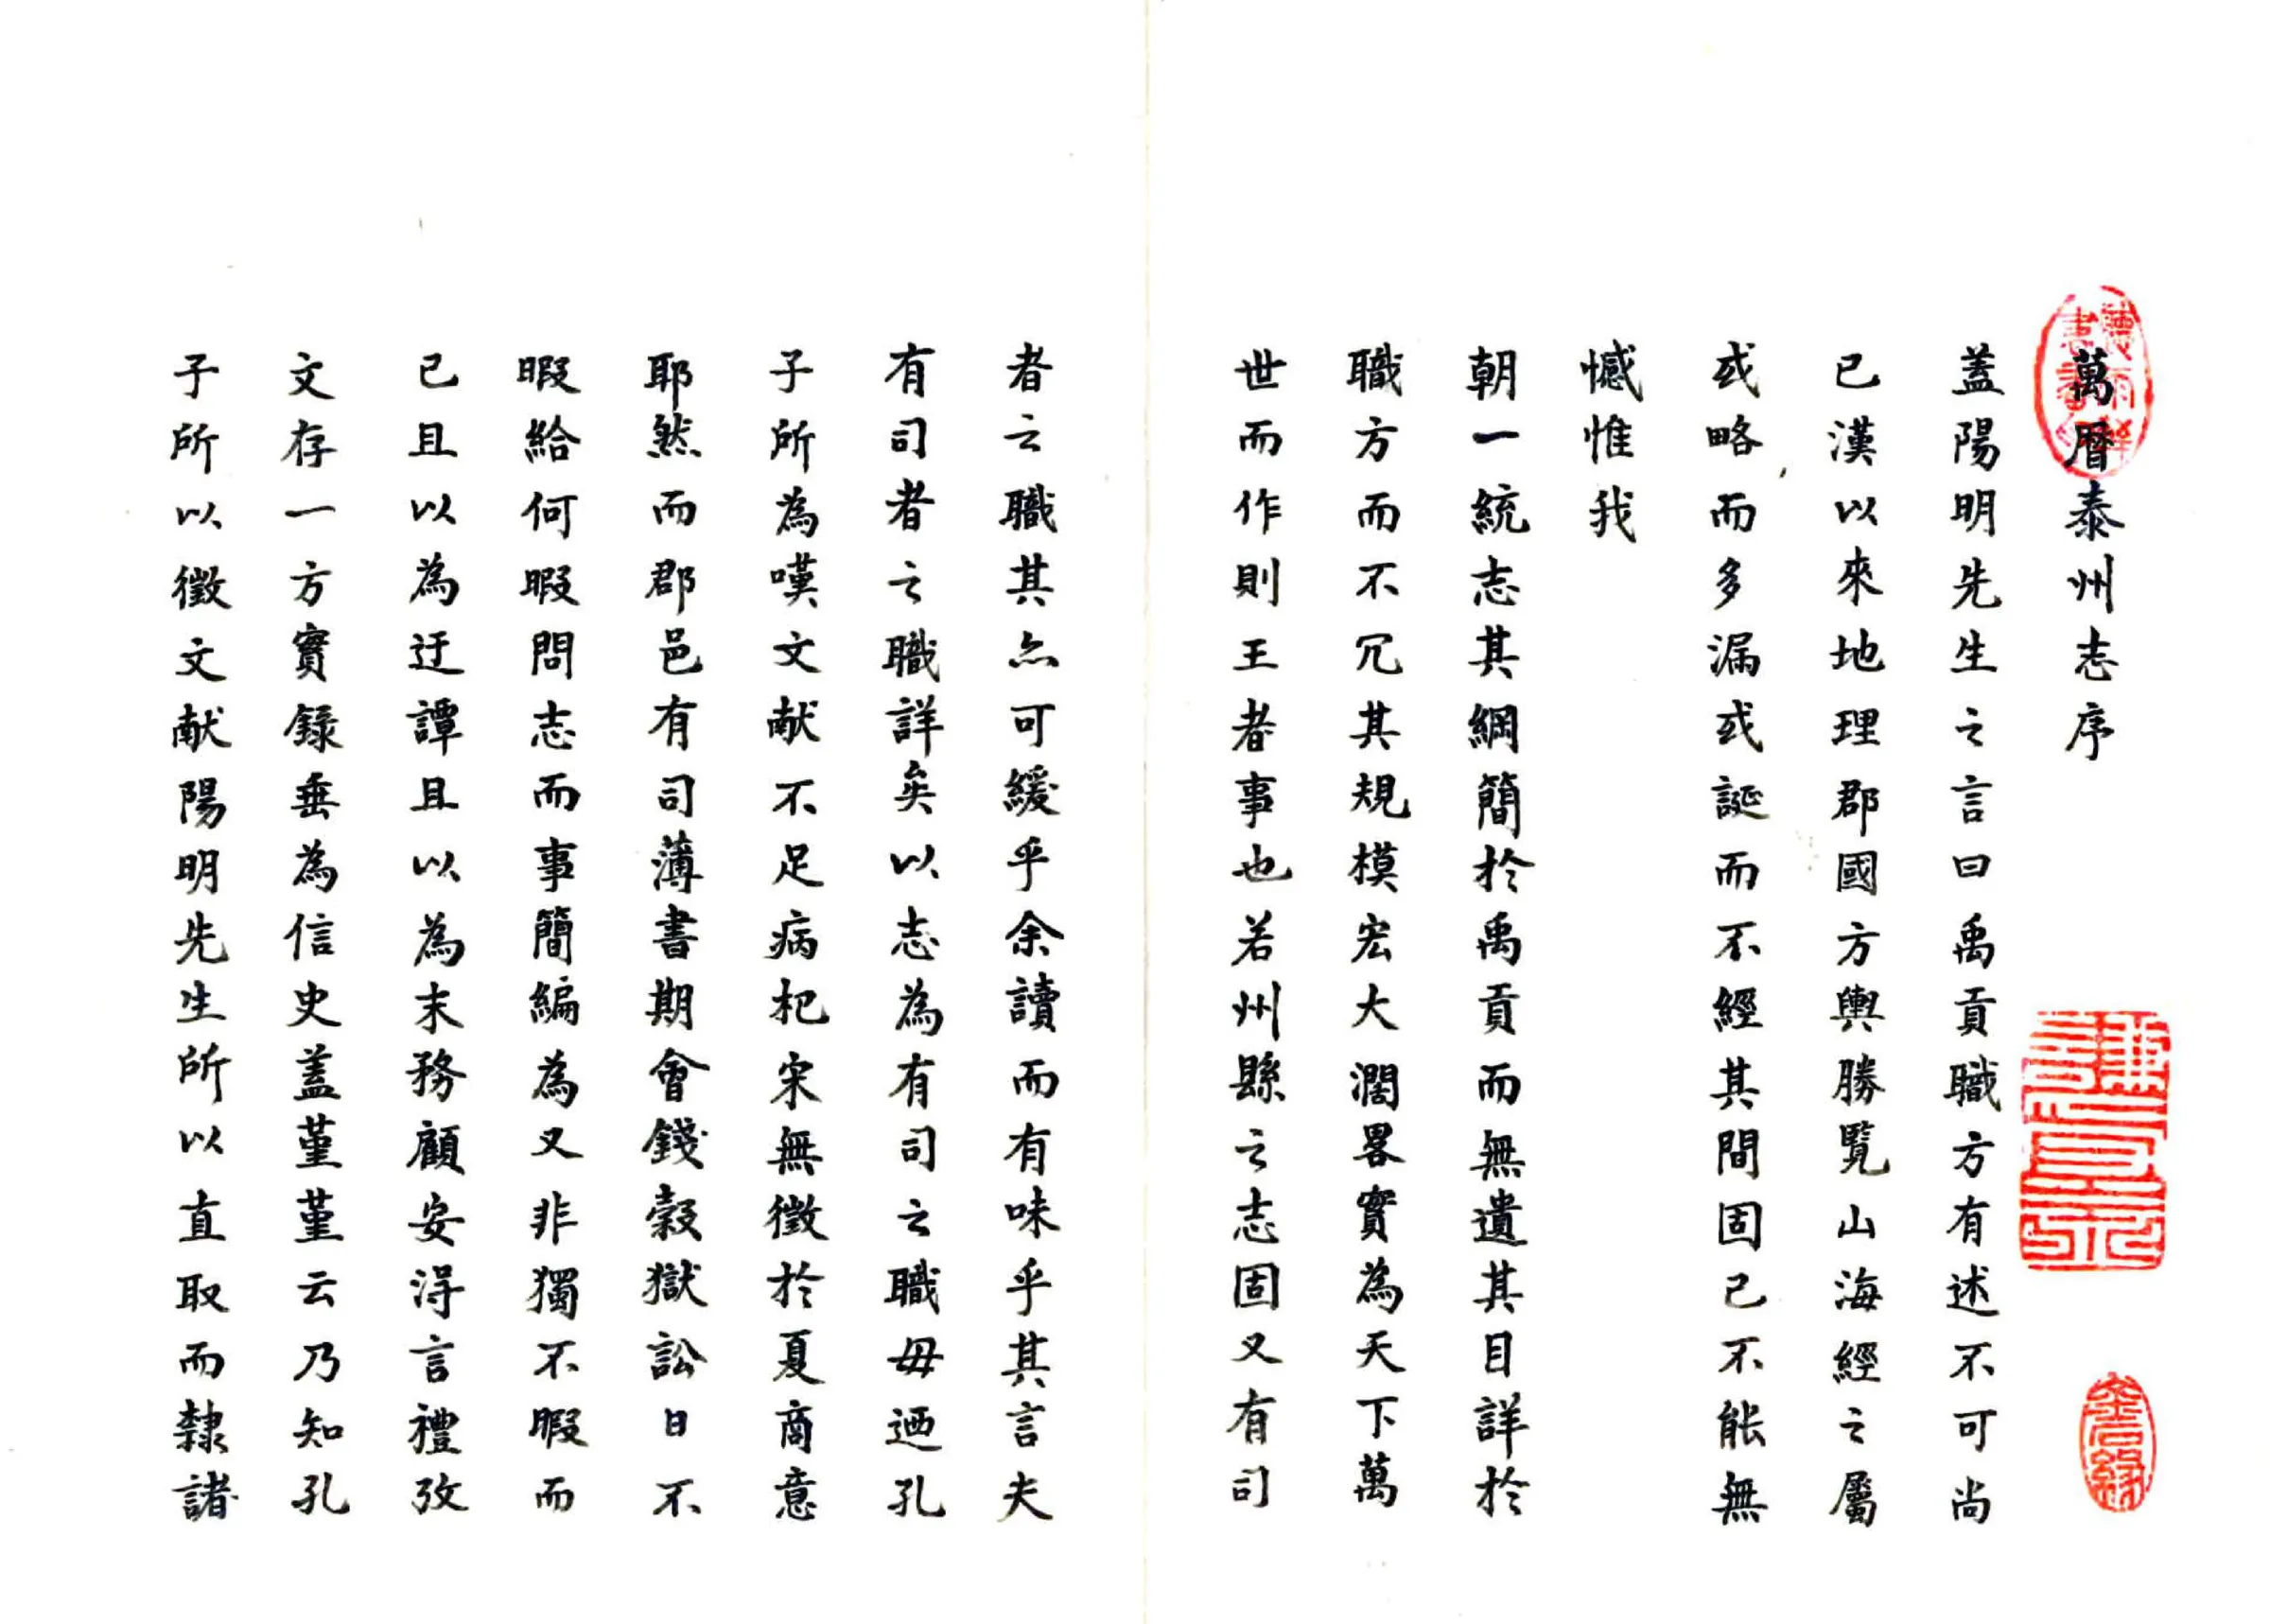 萬曆泰州志序
蓋陽明先生之言曰禹貢職方有述不可尚
已漢以來地理郡國方輿勝覧山海經之屬
或略而多漏或誕而不經其間固已不能無
憾惟我
朝一統志其綱簡於禹貢而無遺其目詳於
職方而不冗其規模宏大濶畧實為天下萬
世而作則王者事也若州縣之志固又有司
者之職其亦可緩乎余讀而有味乎其言夫
有司者之職詳矣以志為有司之職毋迺孔
子所為嘆文献不足病杞宋無徵於夏商意
耶然而郡邑有司薄書期會錢穀獄訟日不
暇給何暇問志而事簡編為又非獨不暇而
已且以為迂譚且以為末務顧安得言禮攷
文存一方實録垂為信史蓋堇堇云乃知孔
子所以徵文献陽明先生所以直取而隸諸